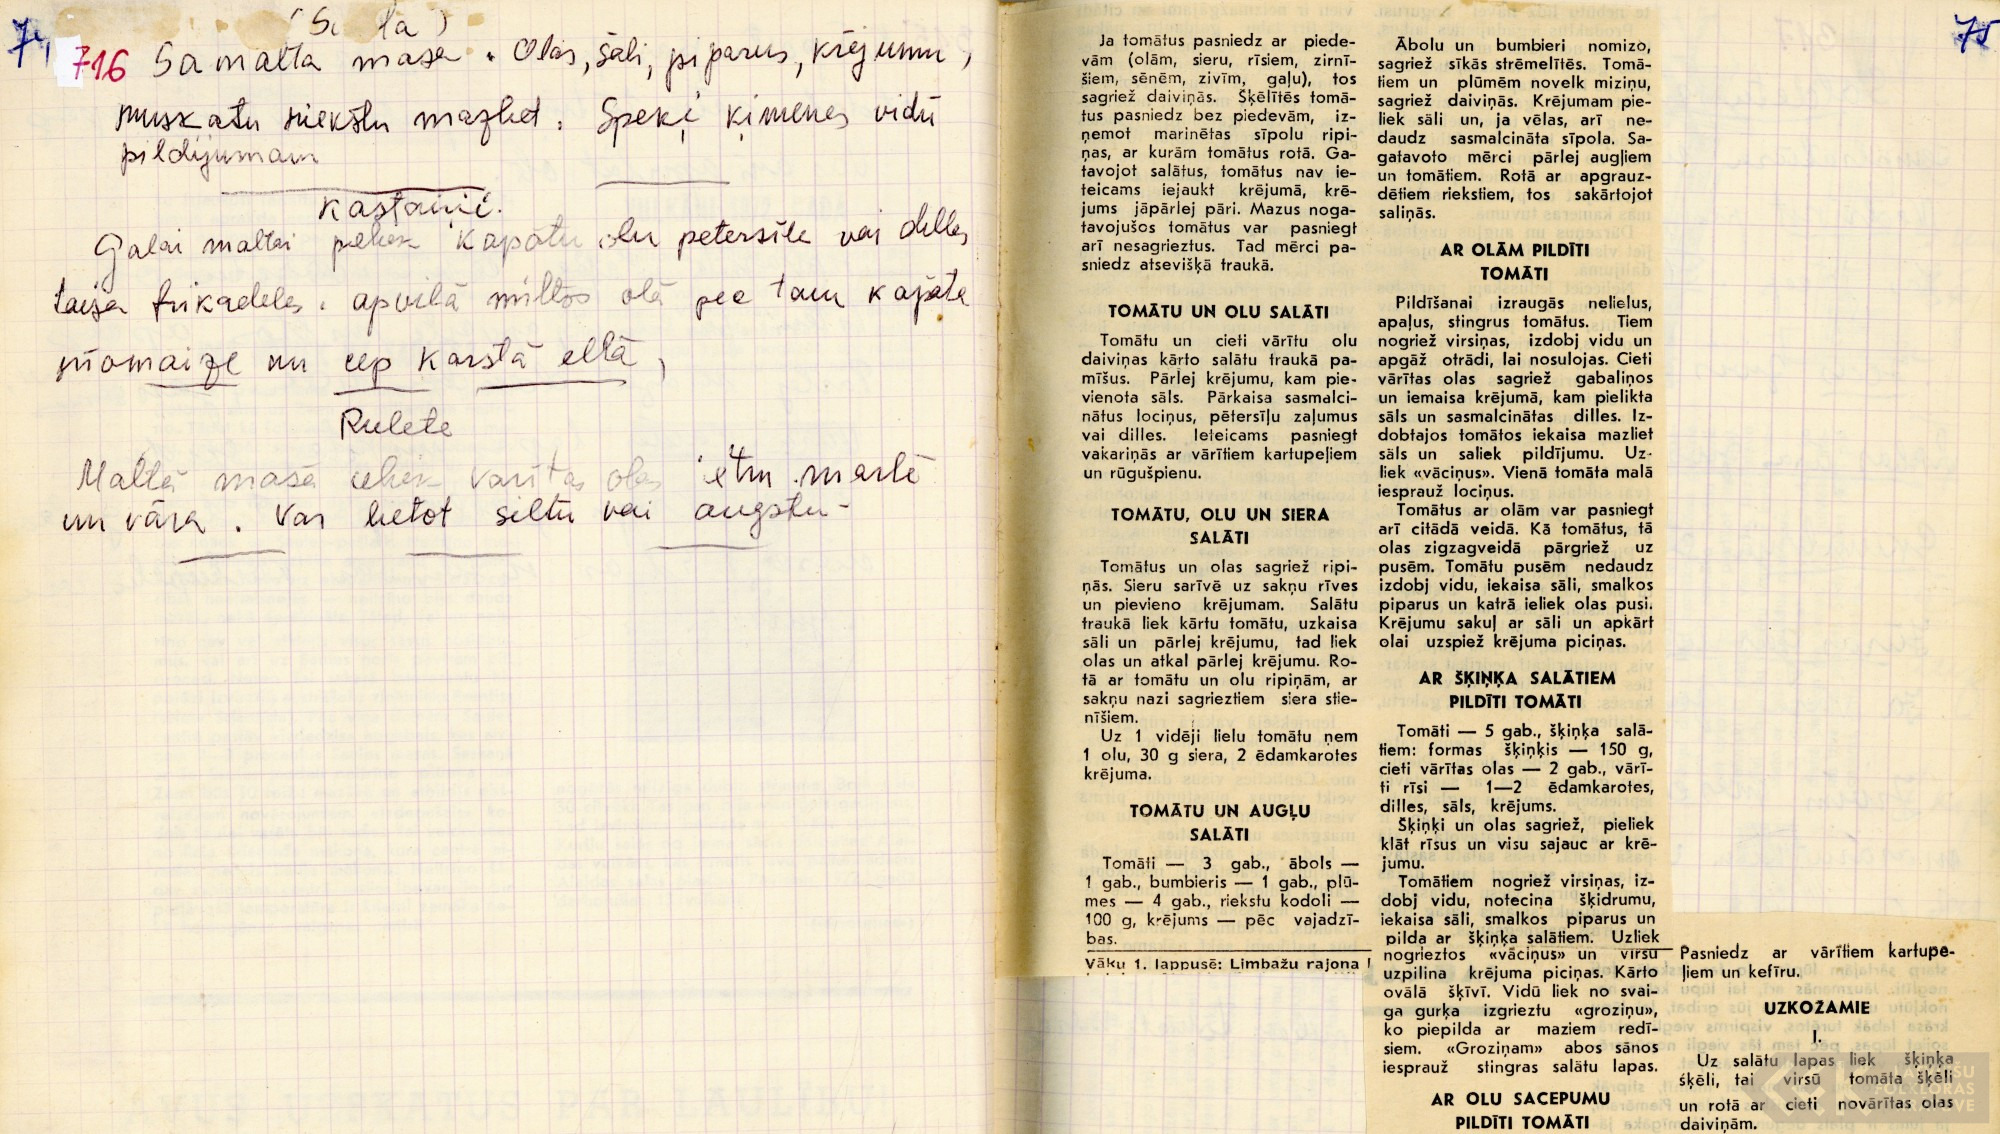 716 Samalta masa. Olas, sāli, piparus, krējumu,
muskatu riekstu mazliet. Speķi ķimenes vidū
pildījumam
Kastaiņi.
Gaļai maltai peliek kapātu olu petersīle vai dilles
taisa frikadeles. apviļā miltos olā pec tam kapāta
rīvmaize un cep karstā eļļā,
Rulete
Maltā masā ieliek varītas olas ietin marlē
un vāra. Var lietot siltu vai augstu-
75
Ja tomātus pasniedz ar piede-
vām (olām, sieru, rīsiem, zirnī-
šiem, sēnēm, zivīm, gaļu), tos
sagriež daiviņās. Šķēlītēs tomā-
tus pasniedz bez piedevām, iz-
ņemot marinētas sīpolu ripi-
ņas, ar kurām tomātus rotā. Ga-
tavojot salātus, tomātus nav ie-
teicams iejaukt krējumā, krē-
jums jāpārlej pāri. Mazus noga-
tavojušos tomātus var pasniegt
arī nesagrieztus. Tad mērci pa-
sniedz atsevišķā traukā.
TOMĀTU UN OLU SALĀTI
Tomātu un cieti vārītu olu
daiviņas kārto salātu traukā pa-
mīšus. Pārlej krējumu, kam pie-
vienota sāls. Pārkaisa sasmalci-
nātus lociņus, pētersīļu zaļumus
vai dilles. Ieteicams pasniegt
vakariņās ar vārītiem kartupeļiem
un rūgušpienu.
TOMĀTU, OLU UN SIERA
SALĀTI
Tomātus un olas sagriež ripi-
ņās. Sieru sarīvē uz sakņu rīves
un pievieno krējumam. Salātu
traukā liek kārtu tomātu, uzkaisa
sāli un pārlej krējumu, tad liek
olas un atkal pārlej krējumu. Ro-
tā ar tomātu un olu ripiņām, ar
sakņu nazi sagrieztiem siera stie-
nīšiem.
Uz 1 vidēji lielu tomātu ņem
1 olu, 30 g siera, 2 ēdamkarotes
krējuma.
TOMĀTU UN AUGĻU
SALĀTI
Tomāti — 3 gab., ābols —
1 gab., bumbieris — 1 gab., plū-
mes — 4 gab., riekstu kodoli —
100 g, krējums — pēc vajadzī-
bas.
Vāku 1. lappusē: Limbažu rajona
Ābolu un bumbieri nomizo,
sagriež sīkās strēmelītēs. Tomā-
tiem un plūmēm novelk miziņu,
sagriež daiviņās. Krējumam pie-
liek sāli un, ja vēlas, arī ne-
daudz sasmalcināta sīpola. Sa-
gatavoto mērci pārlej augļiem
un tomātiem. Rotā ar apgrauz-
dētiem riekstiem, tos sakārtojot
saliņās.
AR OLĀM PILDĪTI
TOMĀTI
Pildīšanai izraugās nelielus,
apaļus, stingrus tomātus. Tiem
nogriež virsiņas, izdobj vidu un
apgāž otrādi, lai nosulojas. Cieti
vārītas olas sagriež gabaliņos
un iemaisa krējumā, kam pielikta
sāls un sasmalcinātas dilles. Iz-
dobtajos tomātos iekaisa mazliet
sāls un saliek pildījumu. Uz-
liek «vāciņus». Vienā tomāta malā
iesprauž lociņus.
Tomātus ar olām var pasniegt
arī citādā veidā. Kā tomātus, tā
olas zigzagveidā pārgriež uz
pusēm. Tomātu pusēm nedaudz
izdobj vidu, iekaisa sāli, smalkos
piparus un katrā ieliek olas pusi.
Krējumu sakuļ ar sāli un apkārt
olai uzspiež krējuma piciņas.
AR ŠĶIŅĶA SALĀTIEM
PILDĪTI TOMĀTI
Tomāti — 5 gab., šķiņķa salā-
tiem: formas šķiņķis — 150 g,
cieti vārītas olas — 2 gab., vārī-
ti rīsi — 1—2 ēdamkarotes,
dilles, sāls, krējums.
Šķiņķi un olas sagriež, pieliek
klāt rīsus un visu sajauc ar krē-
jumu.
Tomātiem nogriež virsiņas, iz-
dobj vidu, notecina šķidrumu,
iekaisa sāli, smalkos piparus un
pilda ar šķiņķa salātiem. Uzliek
nogrieztos «vāciņus» un virsū
uzpilina krējuma piciņas. Kārto
ovālā šķīvī. Vidū liek no svai-
ga gurķa izgrieztu «groziņu»,
ko piepilda ar maziem redī-
siem. «Groziņam» abos sānos
iesprauž stingras salātu lapas.
AR OLU SACEPUMU
PILDĪTI TOMĀTI
Pasniedz ar vārītiem kartupe-
ļiem un kefīru.
UZKOŽAMIE
I.
Uz salātu lapas liek šķiņķa
šķēli, tai virsū tomāta šķēli
un rotā ar cieti novārītas olas
daiviņām.